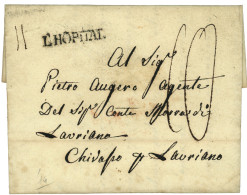 11 L'HOPITAL
Al Sigr
Pietro Augero Agente
Del Sigr Conte
Lavriano
Chivasso p Lavriano